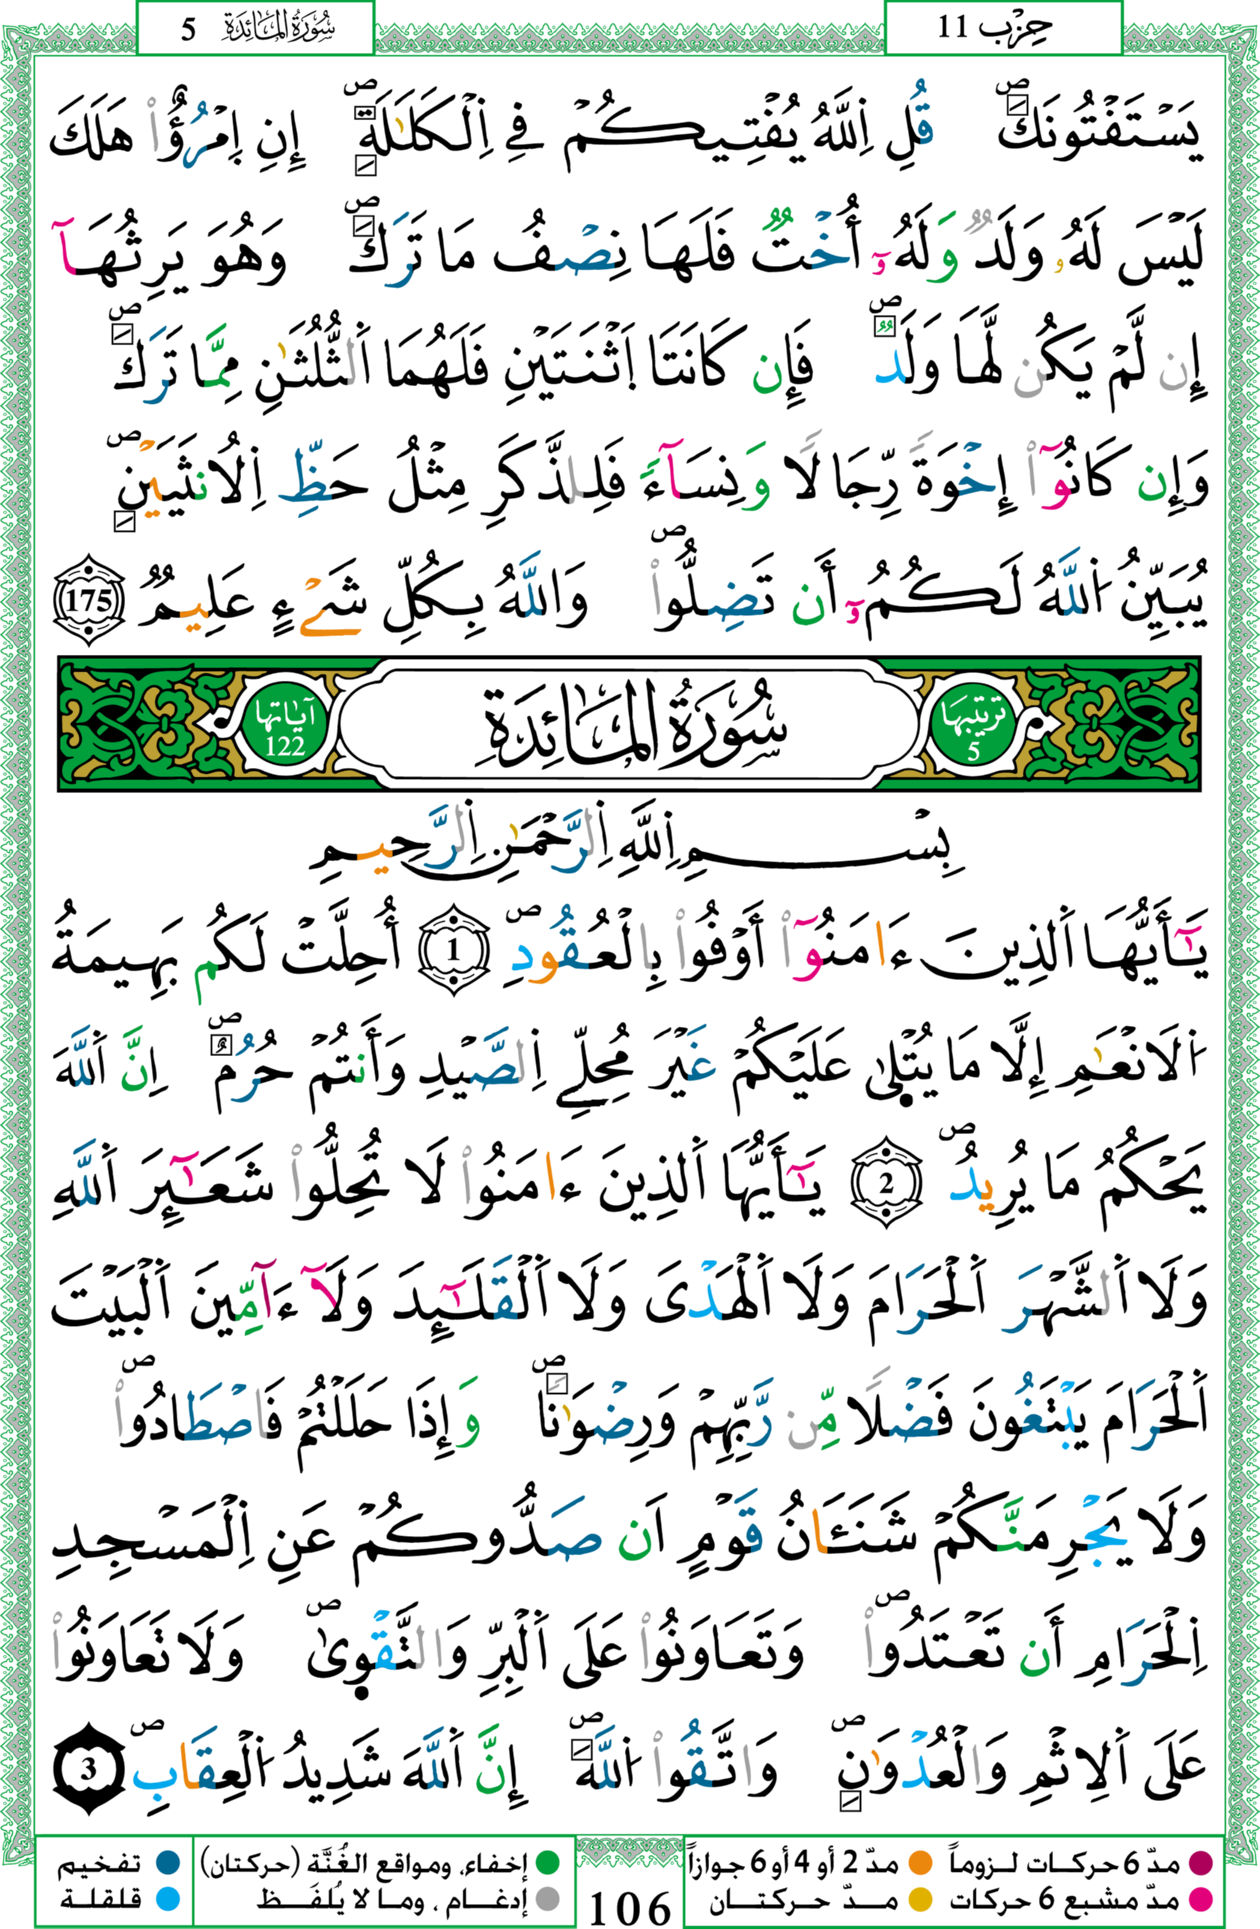 حِزْب 11
سُورَةُ الْمَائِدَةِ 5
يَسْتَفْتُونَكَۖ قُلِ اِ۬للَّهُ يُفْتِيكُمْ فِے اِ۬لْكَلَٰلَةِۖ إِنِ اِ۪مْرُؤٌاْ هَلَكَ
لَيْسَ لَهُۥ وَلَدٞ وَلَهُۥٓ أُخْتٞ فَلَهَا نِصْفُ مَا تَرَكَۖ وَهُوَ يَرِثُهَآ
إِن لَّمْ يَكُن لَّهَا وَلَدٞۖ فَإِن كَانَتَا اَ۪ثْنَتَيْنِ فَلَهُمَا اَ۬لثُّلُثَٰنِ مِمَّا تَرَكَۖ
وَإِن كَانُوٓاْ إِخْوَةٗ رِّجَالاٗ وَنِسَآءٗ فَلِلذَّكَرِ مِثْلُ حَظِّ اِ۬لُانثَيَيْنِۖ
يُبَيِّنُ اُ۬للَّهُ لَكُمُۥٓ أَن تَضِلُّواْۖ وَاللَّهُ بِكُلِّ شَےْءٍ عَلِيمٞ 175
تَرتيبها 5
سُورَةُ الْمَائِدَةِ
آيَاتها 122
بِسْمِ اِ۬للَّهِ اِ۬لرَّحْمَٰنِ اِ۬لرَّحِيمِ
يَٰٓأَيُّهَا اَ۬لذِينَ ءَامَنُوٓاْ أَوْفُواْ بِالْعُقُودِۖ 1 أُحِلَّتْ لَكُم بَهِيمَةُ
اُ۬لَانْعَٰمِ إِلَّا مَا يُتْل۪ىٰ عَلَيْكُمْ غَيْرَ مُحِلِّے اِ۬لصَّيْدِ وَأَنتُمْ حُرُمٌۖ اِنَّ اَ۬للَّهَ
يَحْكُمُ مَا يُرِيدُۖ 2 يَٰٓأَيُّهَا اَ۬لذِينَ ءَامَنُواْ لَا تُحِلُّواْ شَعَٰٓئِرَ اَ۬للَّهِ
وَلَا اَ۬لشَّهْرَ اَ۬لْحَرَامَ وَلَا اَ۬لْهَدْىَ وَلَا اَ۬لْقَلَٰٓئِدَ وَلَآ ءَآمِّينَ اَ۬لْبَيْتَ
اَ۬لْحَرَامَ يَبْتَغُونَ فَضْلاٗ مِّن رَّبِّهِمْ وَرِضْوَٰناٗۖ وَإِذَا حَلَلْتُمْ فَاصْطَادُواْۖ
وَلَا يَجْرِمَنَّكُمْ شَنَـَٔانُ قَوْمٍ اَن صَدُّوكُمْ عَنِ اِ۬لْمَسْجِدِ
اِ۬لْحَرَامِ أَن تَعْتَدُواْۖ وَتَعَاوَنُواْ عَلَى اَ۬لْبِرِّ وَالتَّقْو۪ىٰۖ وَلَا تَعَاوَنُواْ
عَلَى اَ۬لِاثْمِ وَالْعُدْوَٰنِۖ وَاتَّقُواْ اُ۬للَّهَۖ إِنَّ اَ۬للَّهَ شَدِيدُ اُ۬لْعِقَابِۖ 3
مدّ 6 حركات لـزوماً مدّ 2 أو 4 أو 6 جوازاً
مدّ مشبع 6 حركات مـدّ حـركتـان
106
إخفاء، ومواقع الغُنَّة (حركتان) تفخيم
إدغـام ، ومـا لا يُلفَـظ قلقلة